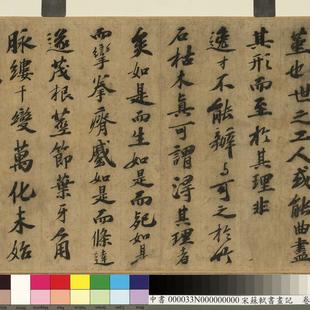 謹也世之工人或能曲盡
其形而至於其理非
逸才不能辨与可之於竹
石枯木真可謂得其理者
矣如是而生如是而死如是
而攣拳瘠蹙如是而條達
遂茂根莖節葉牙角
脉縷千變萬化未始
中書 000033N000000000 宋蘇軾書畫記 卷